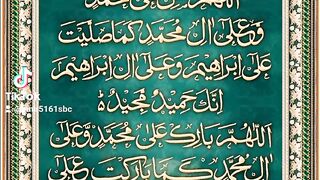 وَعَلٰٓى اٰلِ مُحَمَّدٍ كَمَا صَلَّيْتَ
عَلٰٓى اِبْرَاهِيْمَ وَعَلٰٓى اٰلِ اِبْرَاهِيْمَ
اِنَّكَ حَمِيْدٌ مَّجِيْدٌ
اَللّٰهُمَّ بَارِكْ عَلٰى مُحَمَّدٍ وَّعَلٰٓى
اٰلِ مُحَمَّدٍ كَمَا بَارَكْتَ عَلٰٓى
TikTok